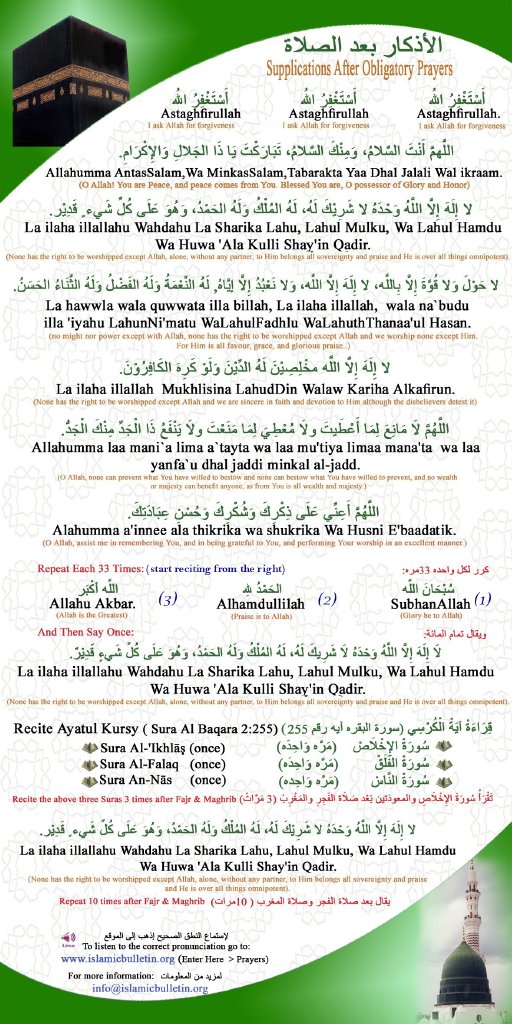 الأذكار بعد الصلاة
Supplications After Obligatory Prayers
أَسْتَغْفِرُ الله أَسْتَغْفِرُ الله أَسْتَغْفِرُ الله
Astaghfirullah Astaghfirullah Astaghfirullah.
I ask Allah for forgiveness I ask Allah for forgiveness I ask Allah for forgiveness
اللَّهمَّ أَنْتَ السَّلامُ، وَمِنْكَ السَّلامُ، تَبَارَكْتَ يَا ذَا الجَلالِ وَالإِكْرَامِ.
Allahumma AntasSalam,Wa MinkasSalam,Tabarakta Yaa Dhal Jalali Wal ikraam.
(O Allah! You are Peace, and peace comes from You. Blessed You are, O possessor of Glory and Honor)
لا إِلَهَ إِلَّا اللَّهُ وَحْدَهُ لا شَرِيْكَ لَهُ، لَهُ المُلْكُ وَلَهُ الحَمْدُ، وَهُوَ عَلَى كُلِّ شَيءٍ قَدِيْر.
La ilaha illallahu Wahdahu La Sharika Lahu, Lahul Mulku, Wa Lahul Hamdu
Wa Huwa 'Ala Kulli Shaγ'in Qadir.
(None has the right to be worshipped except Allah, alone, without any partner, to Him belongs all sovereignty and praise and He is over all things omnipotent).
لا حَوْلَ وَلا قُوَّةَ إِلَّا بِاللَّه، لا إِلَهَ إِلَّا اللَّه، وَلا نَعْبُدُ إِلَّا إِيَّاهُ, لَهُ النِّعْمَةُ وَلَهُ الفَضْلُ وَلَهُ الثَّنَاءُ الحَسَنُ.
La hawwla wala quwwata illa billah, La ilaha illallah, wala na`budu
illa 'iyahu LahunNi'matu WaLahulFadhlu WaLahuthThanaa'ul Hasan.
(no might nor power except with Allah, none has the right to be worshipped except Allah and we worship none except Him.
For Him is all favour, grace, and glorious praise..)
لا إِلَهَ إِلَّا اللَّه مخلِصِيْنَ لَهُ الدِّيْنَ وَلَوْ كَرِهَ الكَافِرُوْنَ.
La ilaha illallah Mukhlisina LahudDin Walaw Kariha Alkafirun.
(None has the right to be worshipped except Allah and we are sincere in faith and devotion to Him although the disbelievers detest it)
اللَّهُمَّ لا مَانِعَ لِمَا أَعْطَيتَ وَلا مُعْطِيَ لِمَا مَنَعْتَ وَلا يَنْفَعُ ذَا الْجَدِّ مِنْكَ الْجَدُّ.
Allahumma laa mani`a lima a`tayta wa laa mu'tiya limaa mana'ta wa laa
yanfa`u dhal jaddi minkal al-jadd.
(O Allah, none can prevent what You have willed to bestow and none can bestow what You have willed to prevent, and no wealth
or majesty can benefit anyone, as from You is all wealth and majesty )
اللَّهُمَّ أَعِنِّي عَلَى ذِكْرِكَ وَشُكْرِكَ وَحُسْنِ عِبَادَتِكَ.
Alahumma a'innee ala thikrika wa shukrika Wa Husni E'baadatik.
(O Allah, assist me in remembering You, and in being grateful to You, and performing Your worship in an excellent manner.)
Repeat Each 33 Times: (start reciting from the right) كرر لكل واحده 33مره:
اللَّه أَكْبَر الحَمْدُ لله سُبْحَانَ اللَّه
Allahu Akbar. (3) Alhamdullilah (2) SubhanAllah (1)
(Allah is the Greatest) (Praise is to Allah) (Glory be to Allah)
And Then Say Once: ويقال تمام المائة:
لا إِلَهَ إِلَّا اللَّهُ وَحْدَهُ لا شَرِيْكَ لَهُ، لَهُ المُلْكُ وَلَهُ الحَمْدُ، وَهُوَ عَلَى كُلِّ شَيءٍ قَدِيْرٌ.
La ilaha illallahu Wahdahu La Sharika Lahu, Lahul Mulku, Wa Lahul Hamdu
Wa Huwa 'Ala Kulli Shaγ'in Qadir.
(None has the right to be worshipped except Allah, alone, without any partner, to Him belongs all sovereignty and praise and He is over all things omnipotent).
Recite Ayatul Kursy ( Sura Al Baqara 2:255) قِرَاءَةُ آيَةُ الْكُرْسِي (سورة البقره آيه رقم 255)
Sura Al-'Ikhlāş (once) سُورَةُ الإِخْلاَصِ (مَرَّه وَاحِدَه)
Sura Al-Falaq (once) سُورَةُ الْفَلَقِ (مَرَّه وَاحِدَه)
Sura An-Nās (once) سُورَةُ النَّاسِ (مَرَّه وَاحِدَه)
Recite the above three Suras 3 times after Fajr & Maghrib تُقْرَأُ سُورَةُ الإِخْلاَصِ والمعوذتين بَعْد صَلَاةَ الفَجرِ وَالمَغْرِبَ (3 مَرَّاتْ)
لا إِلَهَ إِلَّا اللَّهُ وَحْدَهُ لا شَرِيْكَ لَهُ، لَهُ المُلْكُ وَلَهُ الحَمْدُ، وَهُوَ عَلَى كُلِّ شَيءٍ قَدِيْر.
La ilaha illallahu Wahdahu La Sharika Lahu, Lahul Mulku, Wa Lahul Hamdu
Wa Huwa 'Ala Kulli Shaγ'in Qadir.
(None has the right to be worshipped except Allah, alone, without any partner, to Him belongs all sovereignty and praise
and He is over all things omnipotent).
Repeat 10 times after Fajr & Maghrib يقال بعد صلاة الفجر وصلاة المغرب (10مرات)
لإستماع النطق الصحيح إذهب إلى الموقع
Listen To listen to the correct pronunciation go to:
www.islamicbulletin.org (Enter Here > Prayers)
For more information: لمزيد من المعلومات
info@islamicbulletin.org